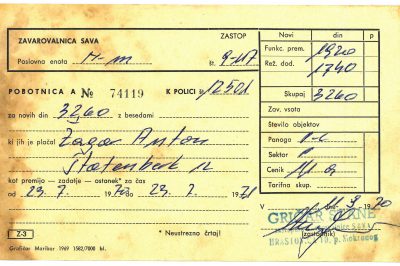 ZAVAROVALNICA SAVA
Poslovna enota M-m
ZASTOP
Št. 9-417
POBOTNICA A № 74119
K POLICI u 12501
za novih din 3260 z besedami
ki jih je plačal Žagar Anton
Štatenberk 12
kot premijo – zadatje – ostanek* za čas
od 23. 7. 1970 do 23. 7. 1971
Z-3
* Neustrezno črtaj!
Grafičar Maribor 1969 1582/7000 bl.
Novi din p
Funkc. prem. 1920
Rež. dod. 1340
Skupaj 3260
Zav. vsota
Število objektov
Panoga
Sektor P
Cenik
Tarifna skup.
V
(zastopnik)